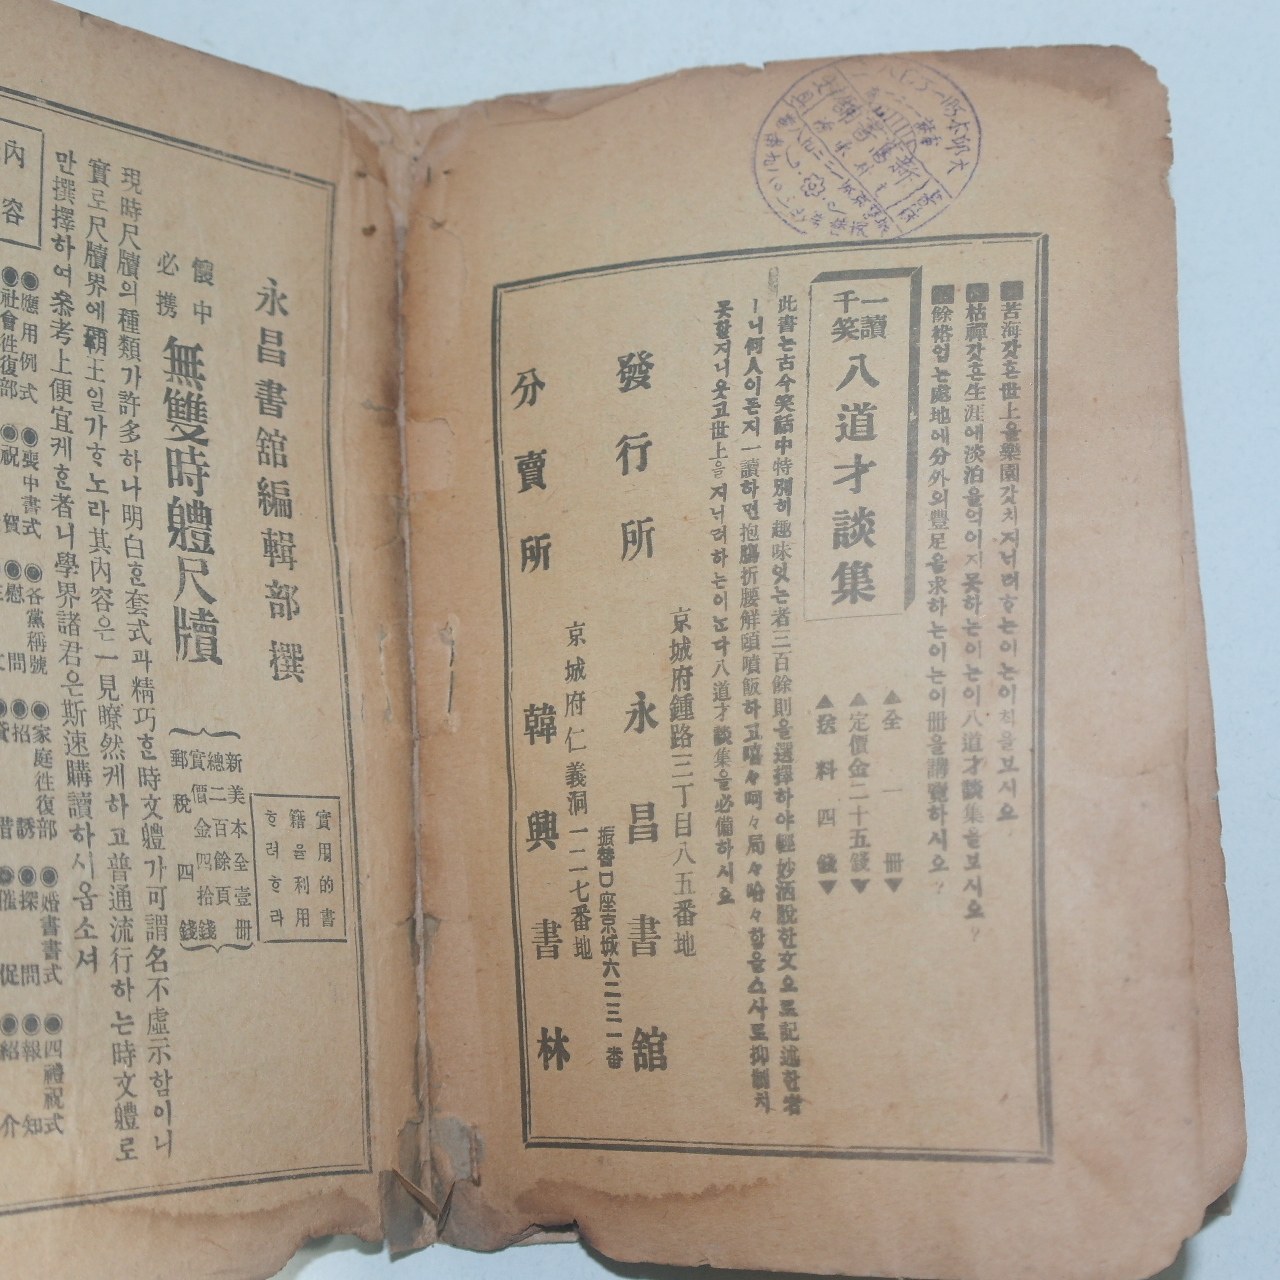 ■苦海갓흔世上을樂園갓치지너려하는이는이책을보시요
■枯禪갓흔生涯에淡泊을익이지못하는이는이八道才談集을보시요
■餘裕업는處地에分外의豐足을求하는이는이册을購覽하시오
一讀千笑
八道才談集
▲全一册▼
▲定價金二十五錢▼
▲送料四錢▼
此書는古今笑話中特別히趣味잇는者三百餘則을選擇하야輕妙洒脫한文으로記述한者
ㅣ니何人이든지一讀하면抱膓折腰解頤噴飯하고嘻々呵々局々哈々함을스사로抑制치
못할지니웃고世上을지너려하는이는다八道才談集을必備하시오
京城府鍾路三丁目八五番地
發行所 永昌書舘
振替口座京城六二三一番
京城府仁義洞一二七番地
分賣所 韓興書林
永昌書舘編輯部 撰
懷中必携
無雙時體尺牘
新美本全壹册
總二百餘頁
實價金四拾錢
郵稅四錢
實用的書
籍을利用
ᄒᆞ려ᄒᆞ라
現時尺牘의種類가許多하나明白ᄒᆞᆫ套式과精巧ᄒᆞᆫ時文體가可謂名不虛示함이니
實로尺牘界에覇王일가ᄒᆞ노라其內容은一見瞭然케하고普通流行하는時文體로
만撰擇하여叅考上便宜케ᄒᆞᆫ者니學界諸君은斯速購讀하시옵소셔
內容
◉應用例式 ◉喪中書式 ◉各黨稱號 ◉家庭徃復部 ◉婚書書式 ◉四禮祝式
◉社會徃復部 ◉祝賀 ◉慰問 ◉招誘 ◉探問 ◉報知
◉催促 ◉紹介